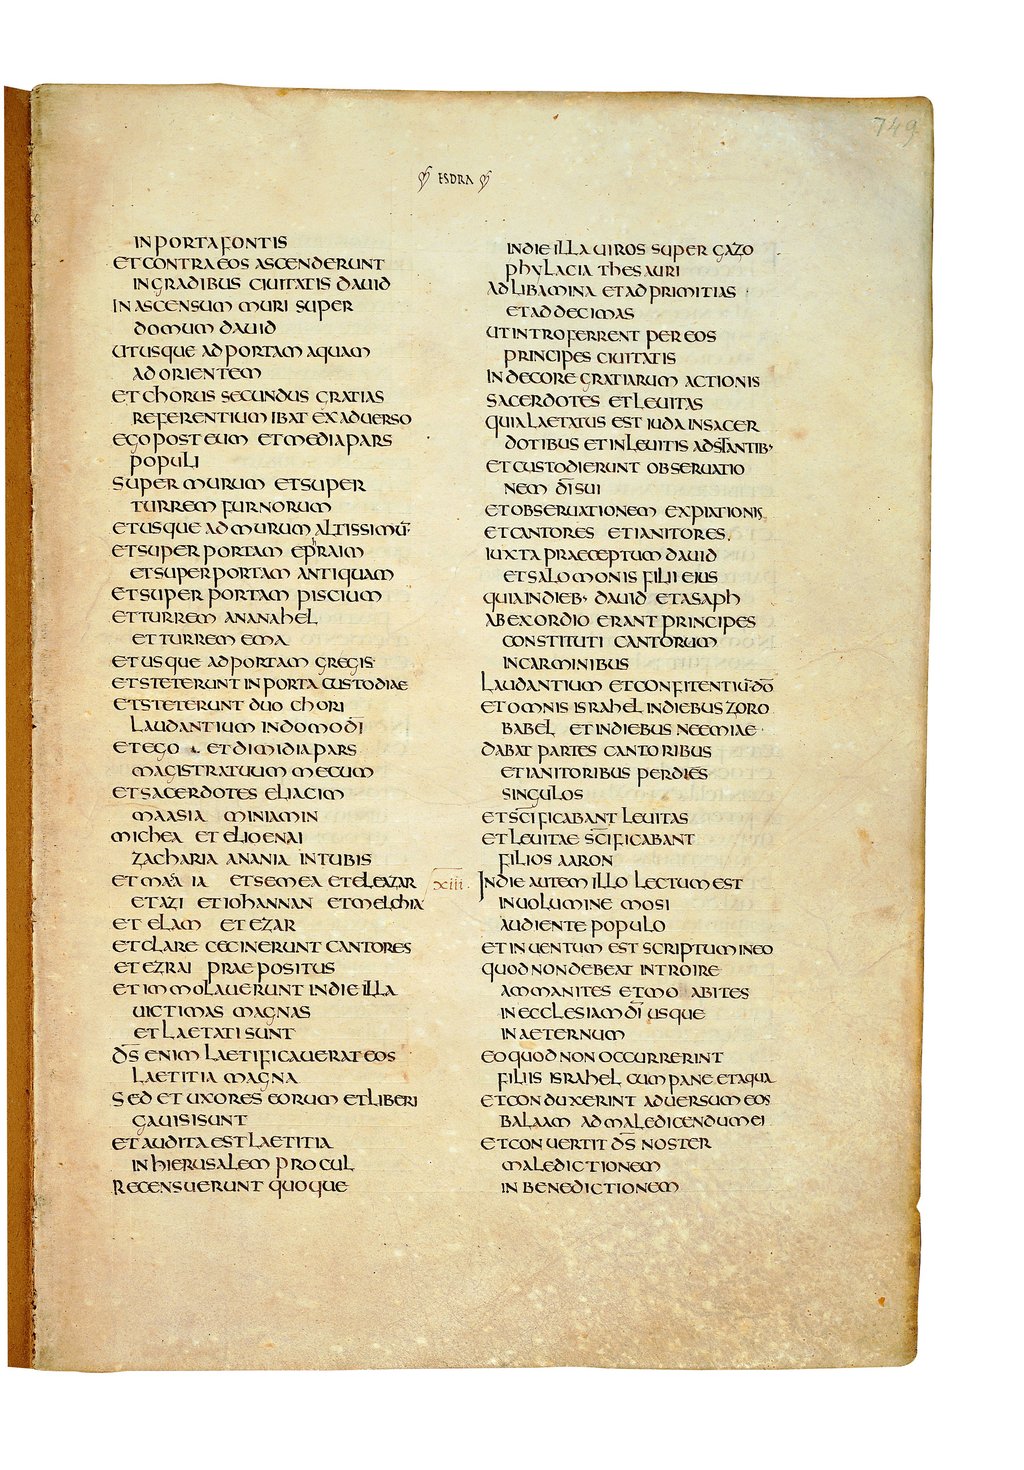 749
ESDRA
IN PORTA FONTIS
ET CONTRA EOS ASCENDERUNT
IN GRADIBUS CIUITATIS DAUID
IN ASCENSUM MURI SUPER
DOMUM DAUID
UT USQUE AD PORTAM AQUAM
AD ORIENTEM
ET CHORUS SECUNDUS GRATIAS
REFERENTIUM IBAT EX ADUERSO
EGO POST EUM ET MEDIA PARS
POPULI
SUPER MURUM ET SUPER
TURREM FURNORUM
ET USQUE AD MURUM ALTISSIMŪ·
ET SUPER PORTAM EPHRAIM
ET SUPER PORTAM ANTIQUAM
ET SUPER PORTAM PISCIUM
ET TURREM ANANAHEL
ET TURREM EMA
ET USQUE AD PORTAM GREGIS·
ET STETERUNT IN PORTA CUSTODIAE
ET STETERUNT DUO CHORI
LAUDANTIUM IN DOMO D̄I
ET EGO ET DIMIDIA PARS
MAGISTRATUUM MECUM
ET SACERDOTES ELIACIM
MAASIA MINIAMIN
MICHEA ET ELIOENAI
ZACHARIA ANANIA IN TUBIS
ET MAA IA ET SEMEA ET ELEAZAR
ET AZI ET IOHANNAN ET MELCHIA
ET ELAM ET EZAR
ET CLARE CECINERUNT CANTORES
ET EZRAI PRAEPOSITUS
ET IMMOLAUERUNT IN DIE ILLA
UICTIMAS MAGNAS
ET LAETATI SUNT
D̄S ENIM LAETIFICAUERAT EOS
LAETITIA MAGNA
SED ET UXORES EORUM ET LIBERI
GAUISI SUNT
ET AUDITA EST LAETITIA
IN HIERUSALEM PROCUL
RECENSUERUNT QUOQUE
IN DIE ILLA UIROS SUPER GAZO
PHYLACIA THESAURI
AD LIBAMINA ET AD PRIMITIAS
ET AD DECIMAS
UT INTROFERRENT PER EOS
PRINCIPES CIUITATIS
IN DECORE GRATIARUM ACTIONIS
SACERDOTES ET LEUITAS
QUIA LAETATUS EST IUDA IN SACER
DOTIBUS ET IN LEUITIS ADSTANTIB·
ET CUSTODIERUNT OBSERUATIO
NEM D̄I SUI
ET OBSERUATIONEM EXPIATIONIS
ET CANTORES ET IANITORES
IUXTA PRAECEPTUM DAUID
ET SALOMONIS FILII EIUS
QUIA IN DIEB· DAUID ET ASAPH
AB EXORDIO ERANT PRINCIPES
CONSTITUTI CANTORUM
IN CARMINIBUS
LAUDANTIUM ET CONFITENTIŪ D̄O
ET OMNIS ISRAHEL IN DIEBUS ZORO
BABEL ET IN DIEBUS NEEMIAE
DABAT PARTES CANTORIBUS
ET IANITORIBUS PER DIES
SINGULOS
ET SC̄IFICABANT LEUITAS
ET LEUITAE SC̄IFICABANT
FILIOS AARON
xiii. IN DIE AUTEM ILLO LECTUM EST
IN UOLUMINE MOSI
AUDIENTE POPULO
ET INUENTUM EST SCRIPTUM IN EO
QUOD NON DEBEAT INTROIRE
AMMANITES ET MOABITES
IN ECCLESIAM D̄I USQUE
IN AETERNUM
EO QUOD NON OCCURRERINT
FILIIS ISRAHEL CUM PANE ET AQUA
ET CONDUXERINT ADUERSUM EOS
BALAAM AD MALEDICENDUM EI
ET CONUERTIT D̄S NOSTER
MALEDICTIONEM
IN BENEDICTIONEM